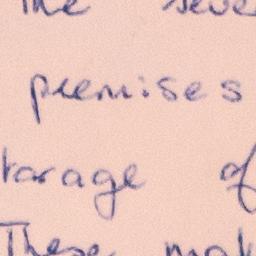 The seve
premises
torage of
These mak